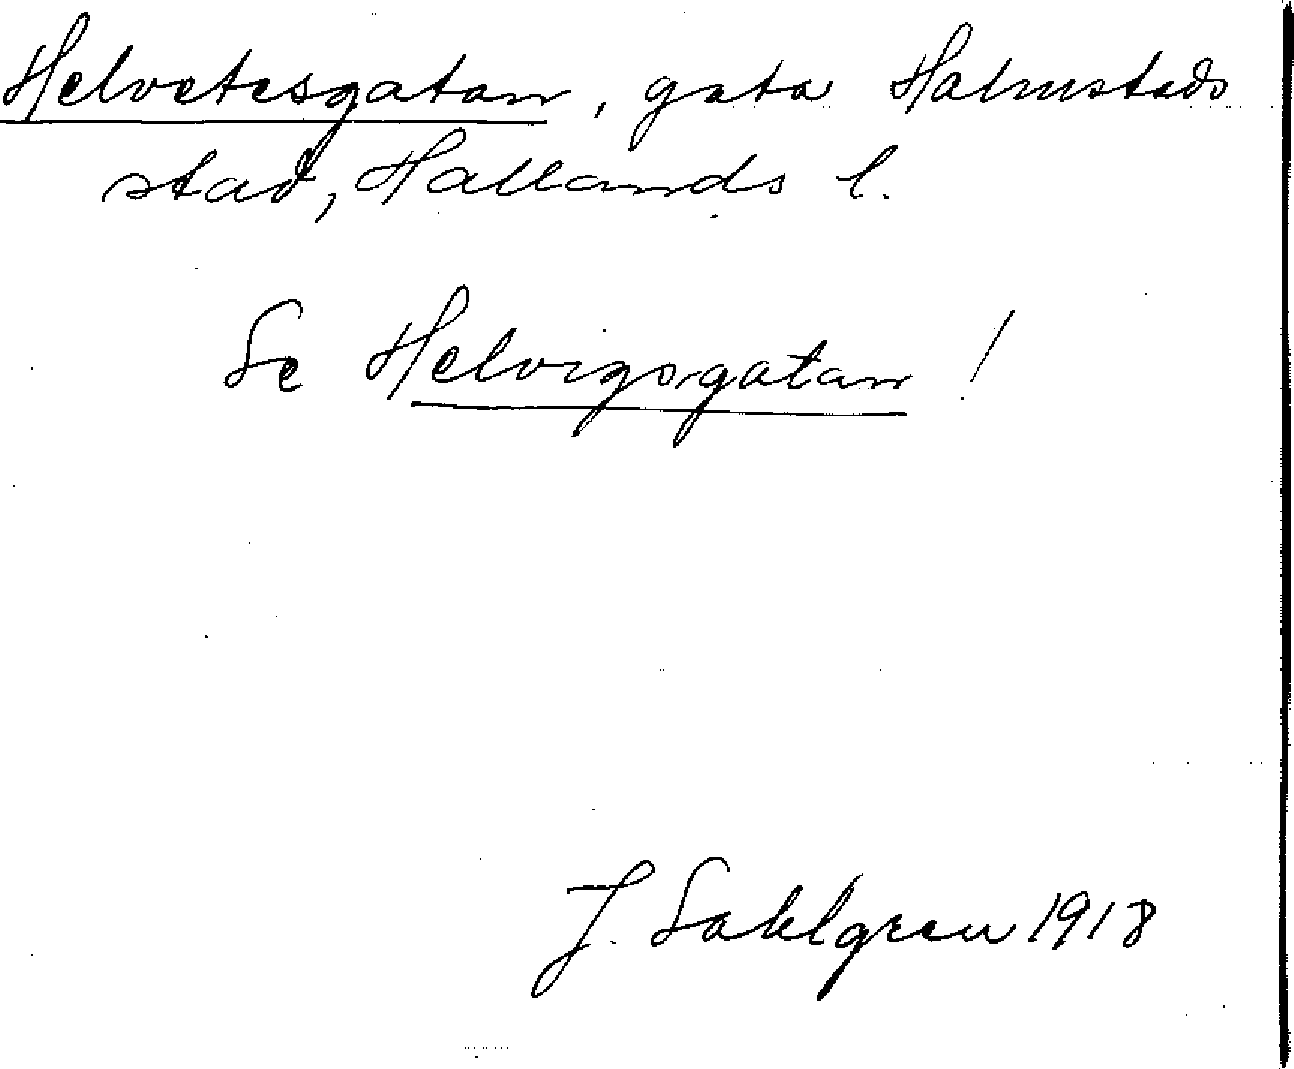 Helvetesgatan, gata Halmstads
stad, Hallands l.
Se Helvigsgatan!
J. Sahlgren 1918